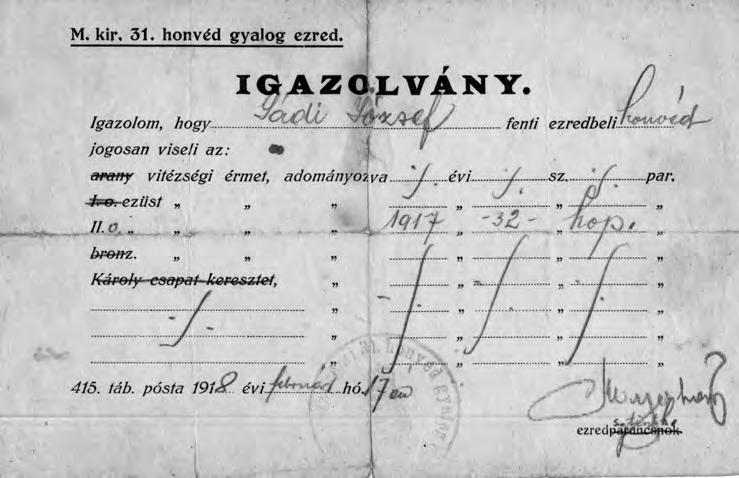 M. kir. 31. honvéd gyalog ezred.
IGAZOLVÁNY.
Igazolom, hogy Gádi József fenti ezredbeli honvéd
jogosan viseli az:
arany vitézségi érmet, adományozva /. évi /. sz. /. par.
I. o. ezüst „ „ „ „ „ „
II. o. „ „ „ 1917 „ -32- „ hop. „
bronz. „ „ „ „ „ „
Károly csapat keresztet, „ „ „ „
- / - „ „ „ „
„ „ „ „
„ „ „ „
415. táb. pósta 1918. évi február hó. 17 én
ezredparancsnok.